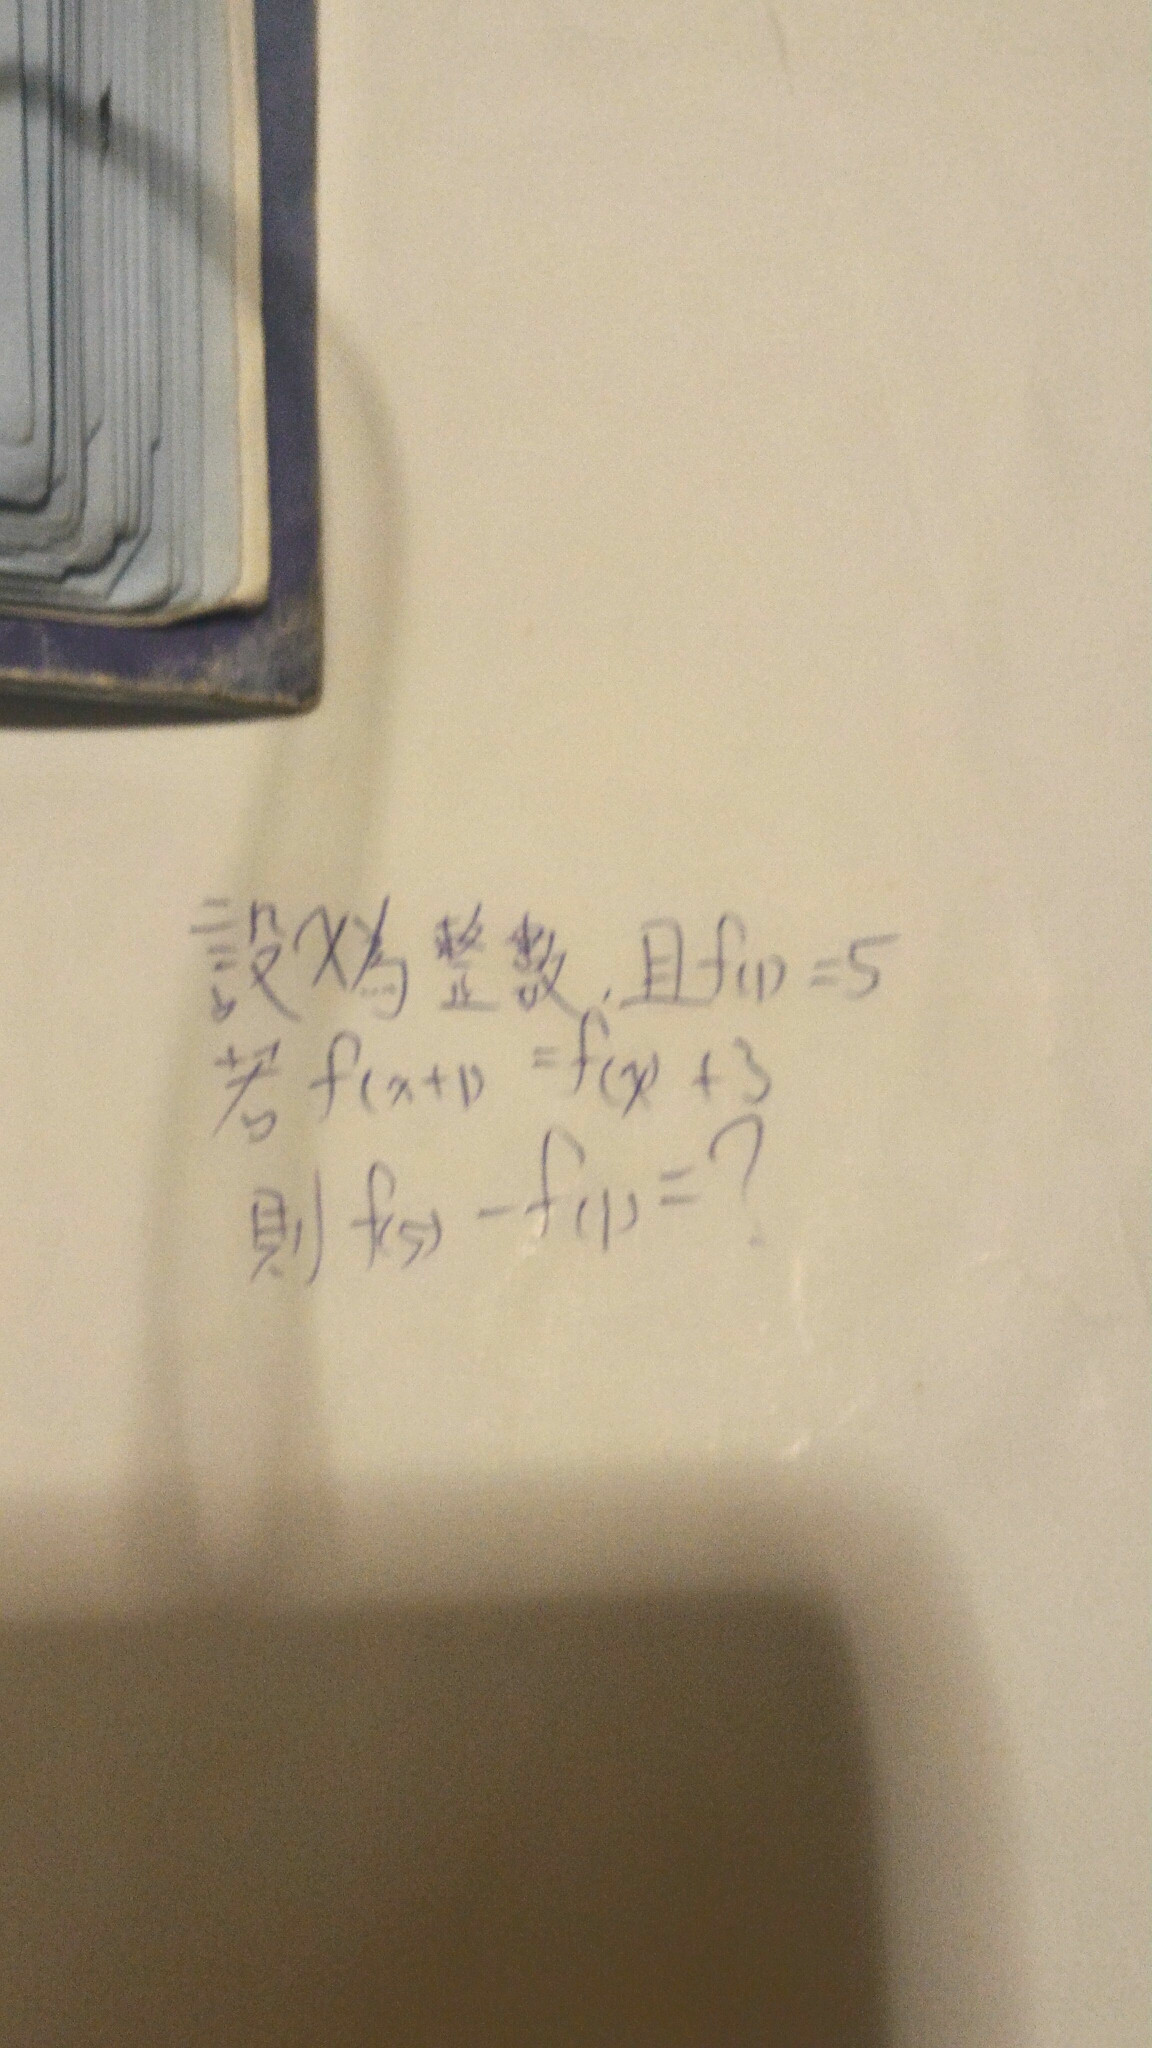 設x為整數,且f(1)=5
若f(x+1)=f(x)+3
則f(5)-f(1)=?